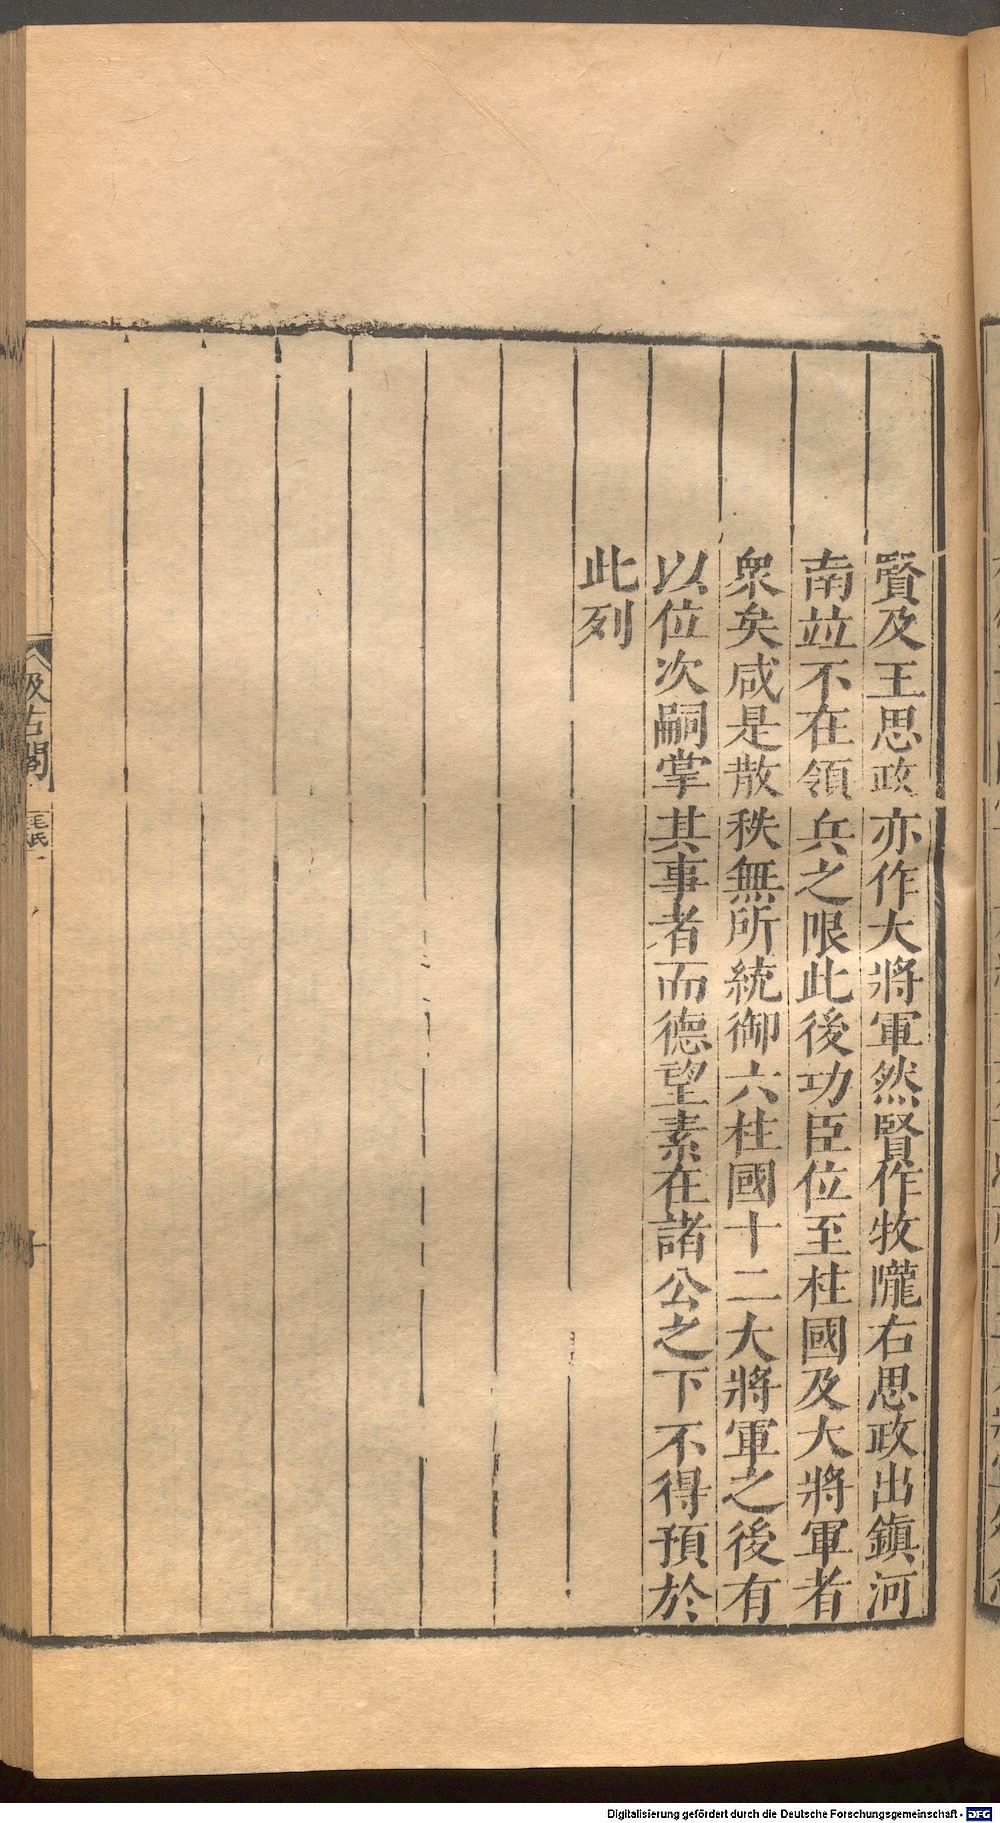 賢及王思政亦作大將軍然賢作牧隴右思政出鎭河
南竝不在領兵之限此後功臣位至柱國及大將軍者
衆矣咸是散秩無所統御六柱國十二大將軍之後有
以位次嗣掌其事者而德望素在諸公之下不得預於
此列
汲古閣
毛氏
Digitalisierung gefördert durch die Deutsche Forschungsgemeinschaft - DFG